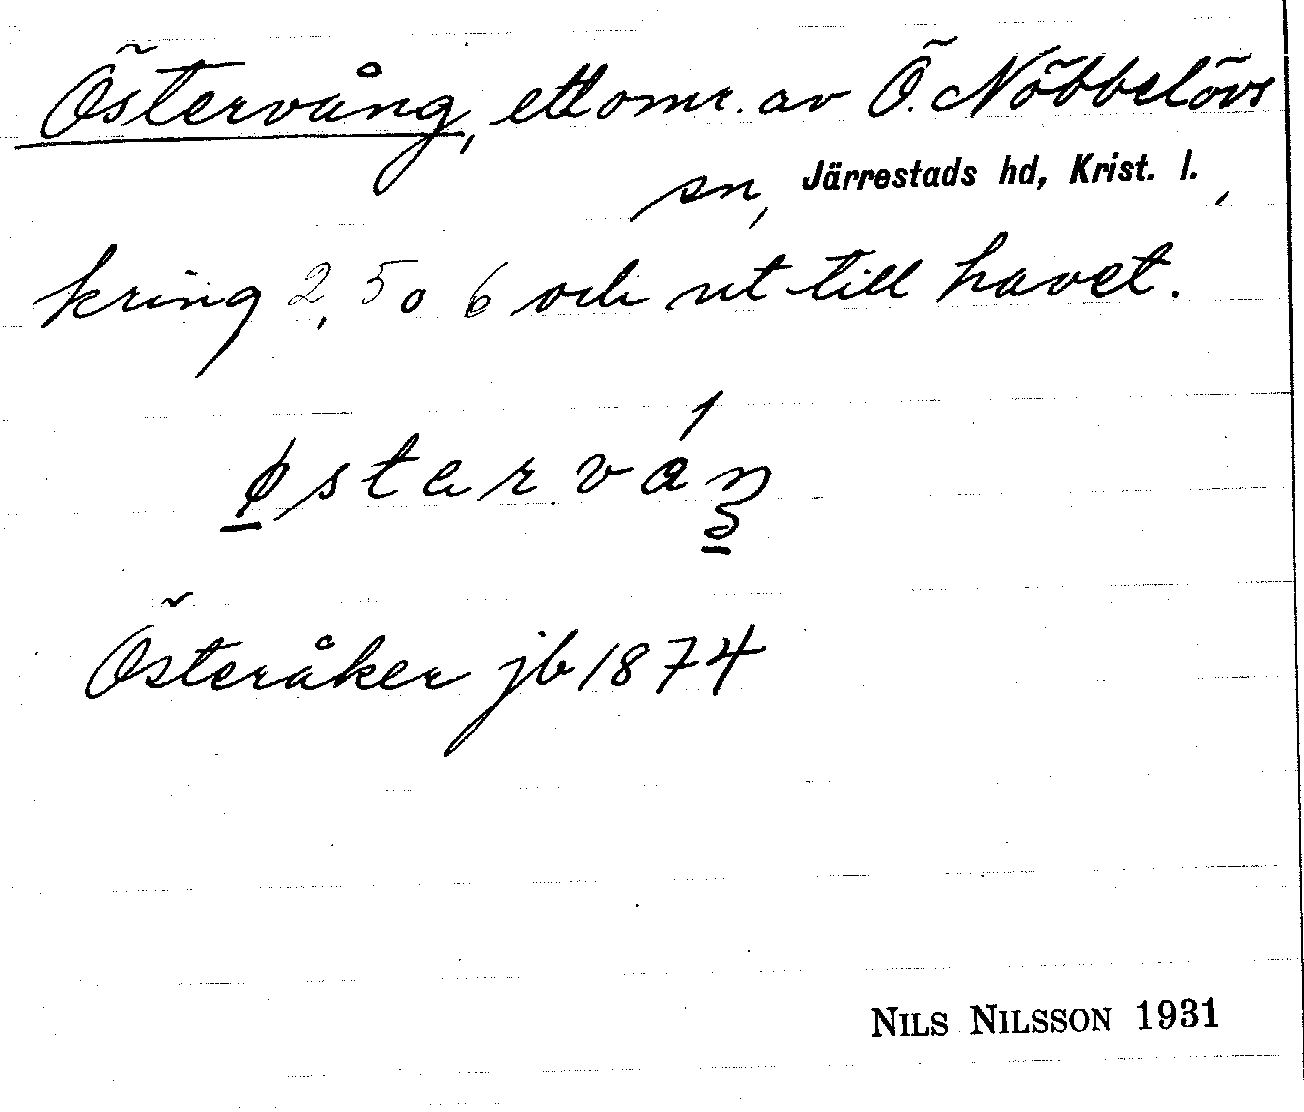 Östervång, ett omr. av Ö. Nöbbelövs
sn, Järrestads hd, Krist. l.,
kring 2, 5 o 6 och ut till havet.
østarváŋ
Österåker jb 1874
NILS NILSSON 1931